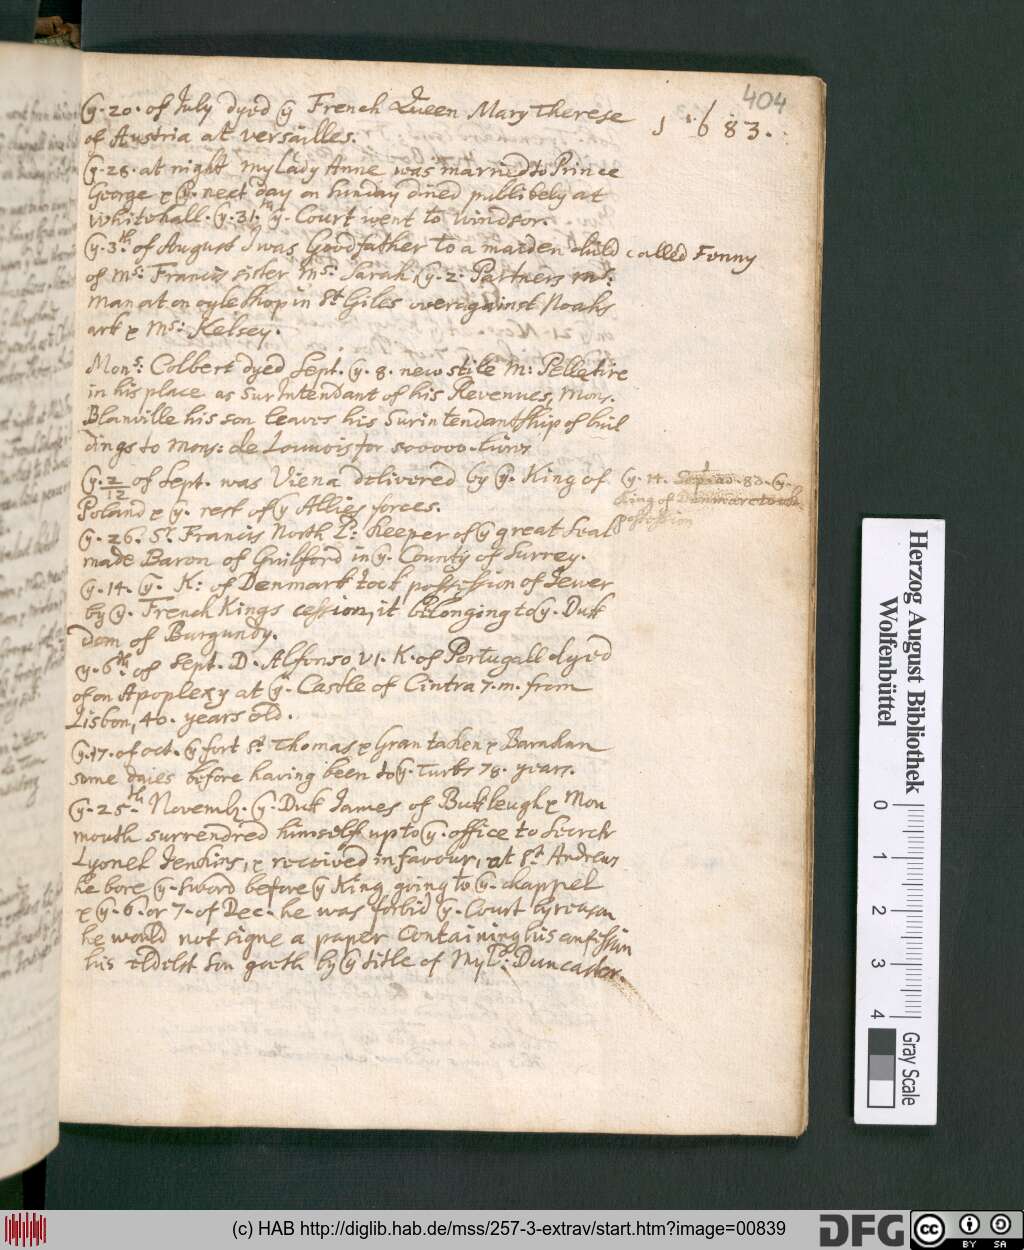 404
1683.
(y. 20. of July dyed (y French Queen Mary Therese
of Austria at versailles.
(y. 28. at night my Lady Anne was married to Prince
George & (y. next day on sunday dined publikely at
whitehall. (y. 31.th (y. Court went to windsor.
(y. 3th. of August I was Goodfather to a maiden child called Fenny
of Ms: Francis sister Ms: Sarah (y. 2. Partners ms:
man at an oyleshop in St Giles overagainst Noahs
ark & Ms: Kelsey.
Mons: Colbert dyed Sept. (y. 8. new stile M: Pelletire
in his place as Sur Intendant of his Revenues, Mons.
Blanville his son leaves his Surintendantship of buil
dings to Mons: de Louvois for 500000.
(y. 2/12 of Sept. was Viena delivered by (y. King of
Poland & (y. rest of (y Allies forces.
(y. 14. 83. (y.
King of Denmarc took
possession
(y. 26. Sr. Francis North Ld: keeper of (y great Seal
made Baron of Guilford in (y. County of Surrey.
(y. 14. (y. K: of Denmark took possession of Jever
by (y. French Kings cession, it belonging to (y. Duk
dom of Burgundy.
(y. 6th. of Sept. D. Alfonso VI. K. of Portugall dyed
of an Apoplexy at (y. Castle of Cintra 7. m. from
Lisbon, 40. years old.
(y. 17. of oct. (y fort St Thomas & Gran tacken & Barackan
some daies before having been to (y. Turks 78. years.
(y. 25.th Novemb. (y. Duk James of Bukleugh & Mon
mouth surrendred himself up to (y. office to Secretr
Lyonel Jenkins, & received in favour, at St Andrews
he bore (y. sword before (y King going to (y. chappel
& (y. 6. or 7. of Dec. he was forbid (y. Court by reason
he would not signe a paper Containing his confession
his eldest son goeth by (y title of My Ld: Duncaster.
Herzog August Bibliothek
Wolfenbüttel
0 1 2 3 4
Gray Scale
(c) HAB http://diglib.hab.de/mss/257-3-extrav/start.htm?image=00839
DFG
cc BY SA